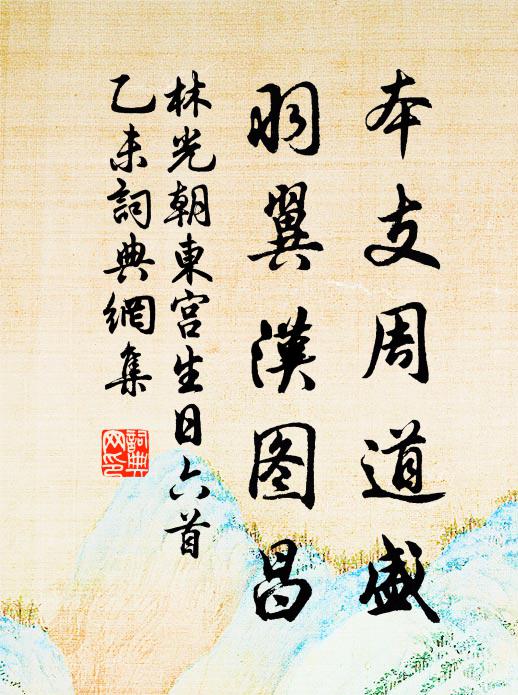 本支周道盛
羽翼漢图昌
林光朝東宫生日六首
乙未詞典網集
詞典
网印